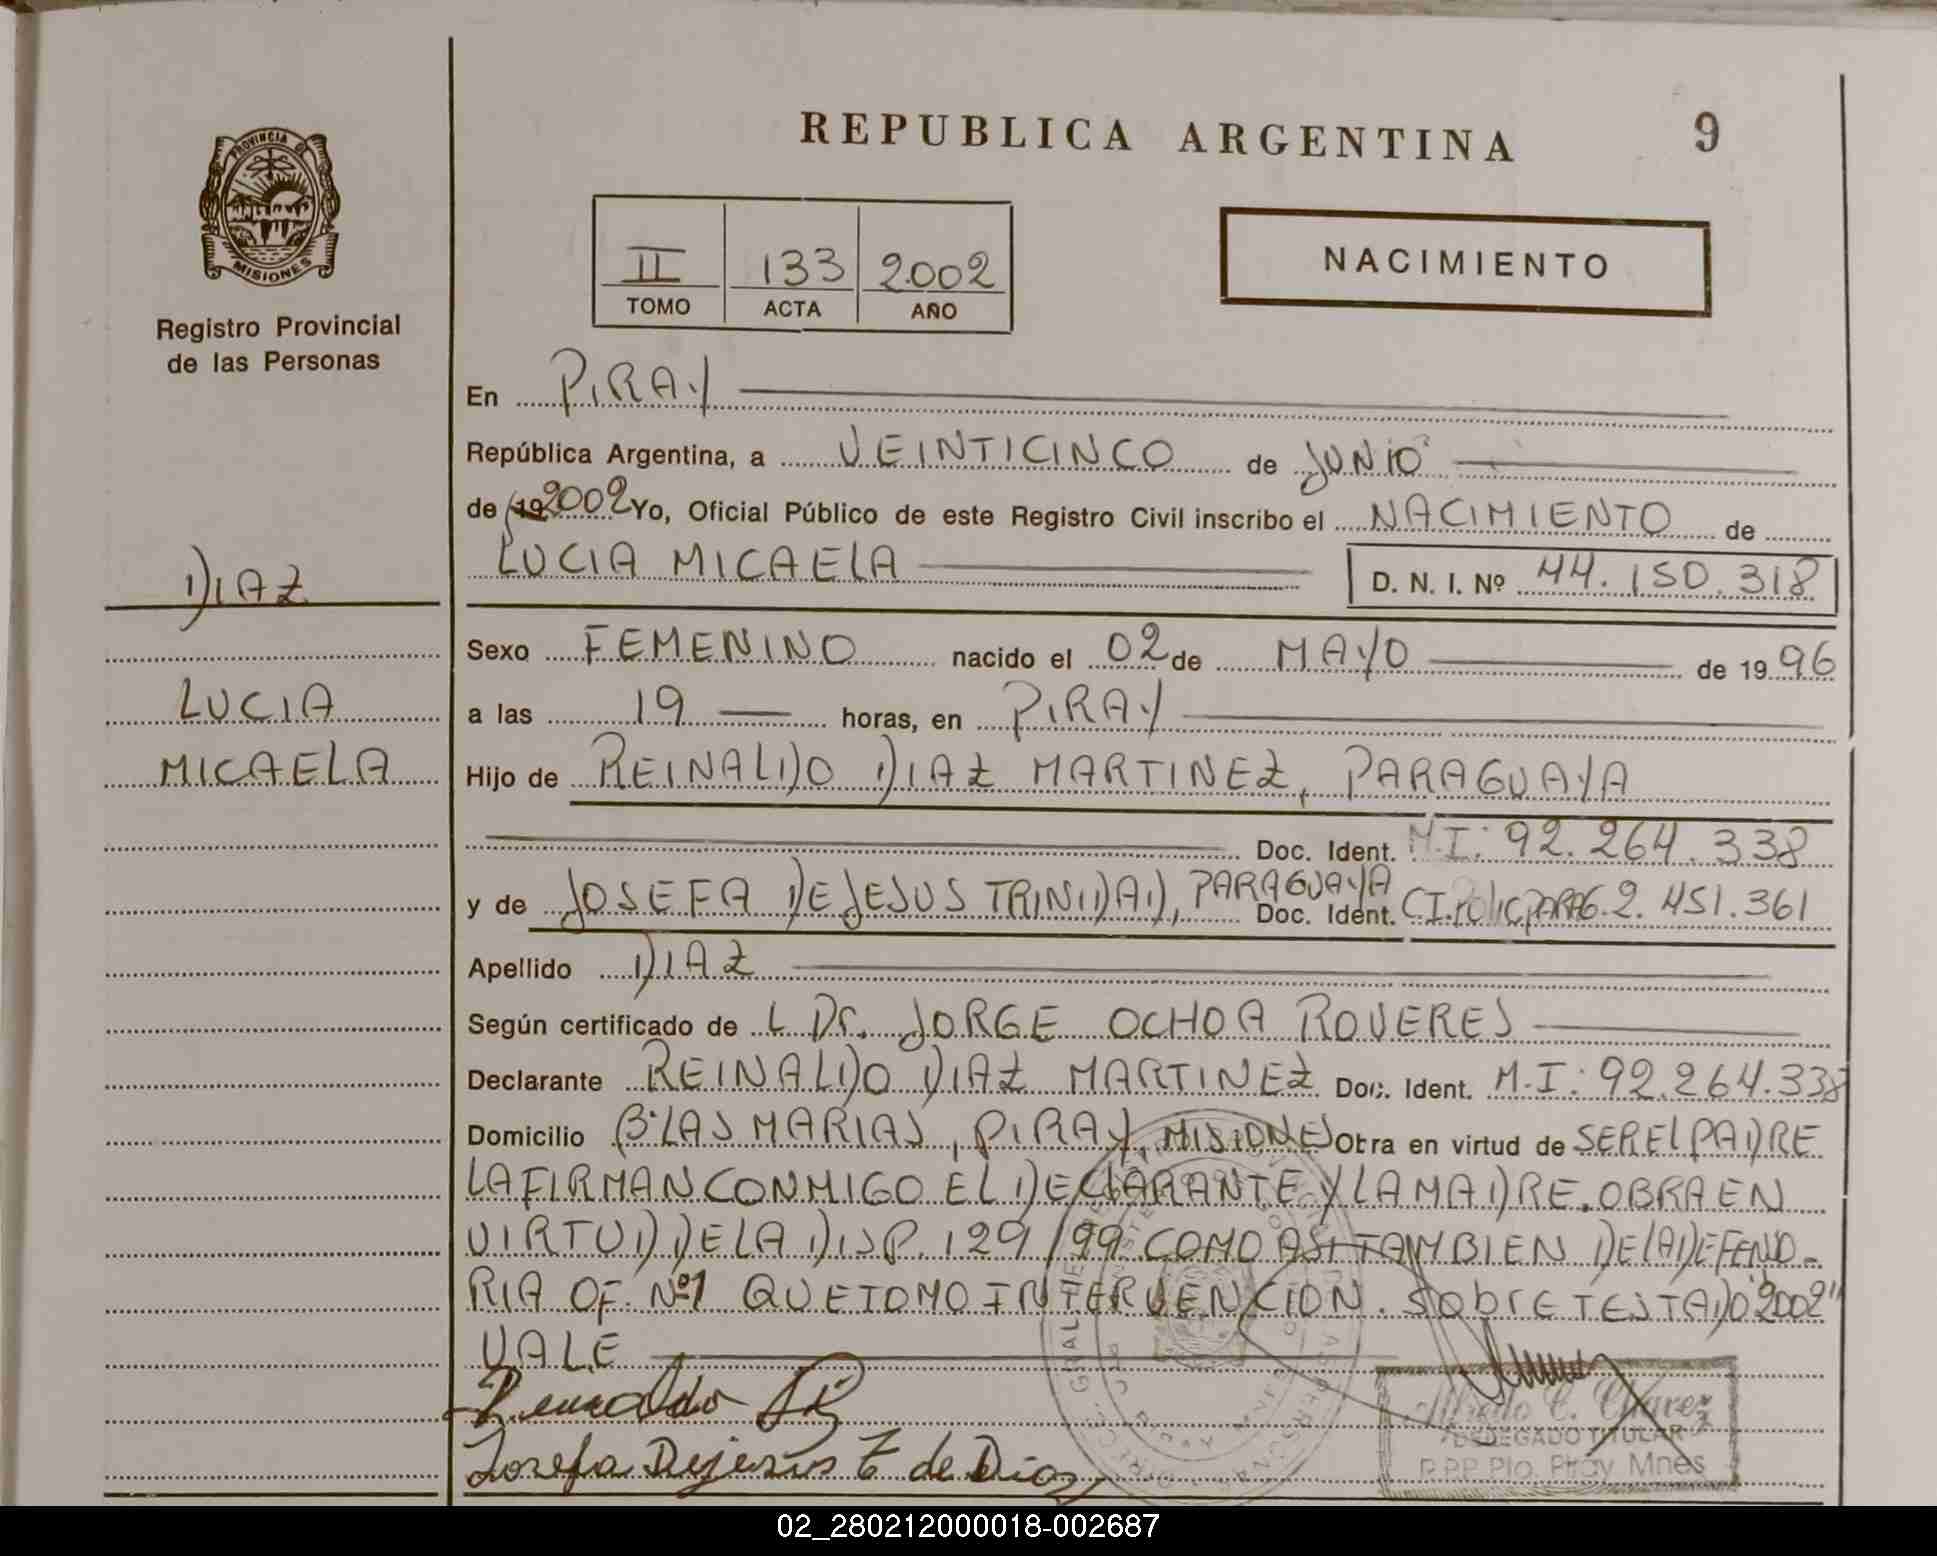 REPUBLICA ARGENTINA 9
PROVINCIA DE
MISIONES
Registro Provincial
de las Personas
II 133 2.002
TOMO ACTA AÑO
NACIMIENTO
DIAZ
LUCIA
MICAELA
En PIRAY
República Argentina, a VEINTICINCO de JUNIO
de (19 2002 Yo, Oficial Público de este Registro Civil inscribo el NACIMIENTO de
LUCIA MICAELA D. N. I. Nº 44.150.318
Sexo FEMENINO nacido el 02 de MAYO de 19 96
a las 19 horas, en PIRAY
Hijo de REINALDO DIAZ MARTINEZ, PARAGUAYA
Doc. Ident. M.I: 92.264.338
y de JOSEFA DE JESUS TRINIDAD, PARAGUAYA Doc. Ident. C.I. POLIC. PARAG. 2.451.361
Apellido DIAZ
Según certificado de L Dr. JORGE OCHOA ROVERES
Declarante REINALDO DIAZ MARTINEZ Doc. Ident. M.I: 92.264.338
Domicilio Bº LAS MARIAS, PIRAY, MISIONES Obra en virtud de SER EL PADRE
LA FIRMAN CONMIGO EL DECLARANTE Y LA MADRE. OBRA EN
VIRTUD DE LA DISP. 129/99 COMO ASI TAMBIEN DE LA DEFENO-
RIA OF. Nº1 QUE TOMO INTERVENCION. Sobre TESTADO "2002"
VALE
Josefa Dejesús T de Diaz
Alfredo C. Chavez
DELEGADO TITULAR
R.P.P. Pto. Piray Mnes
02_280212000018-002687